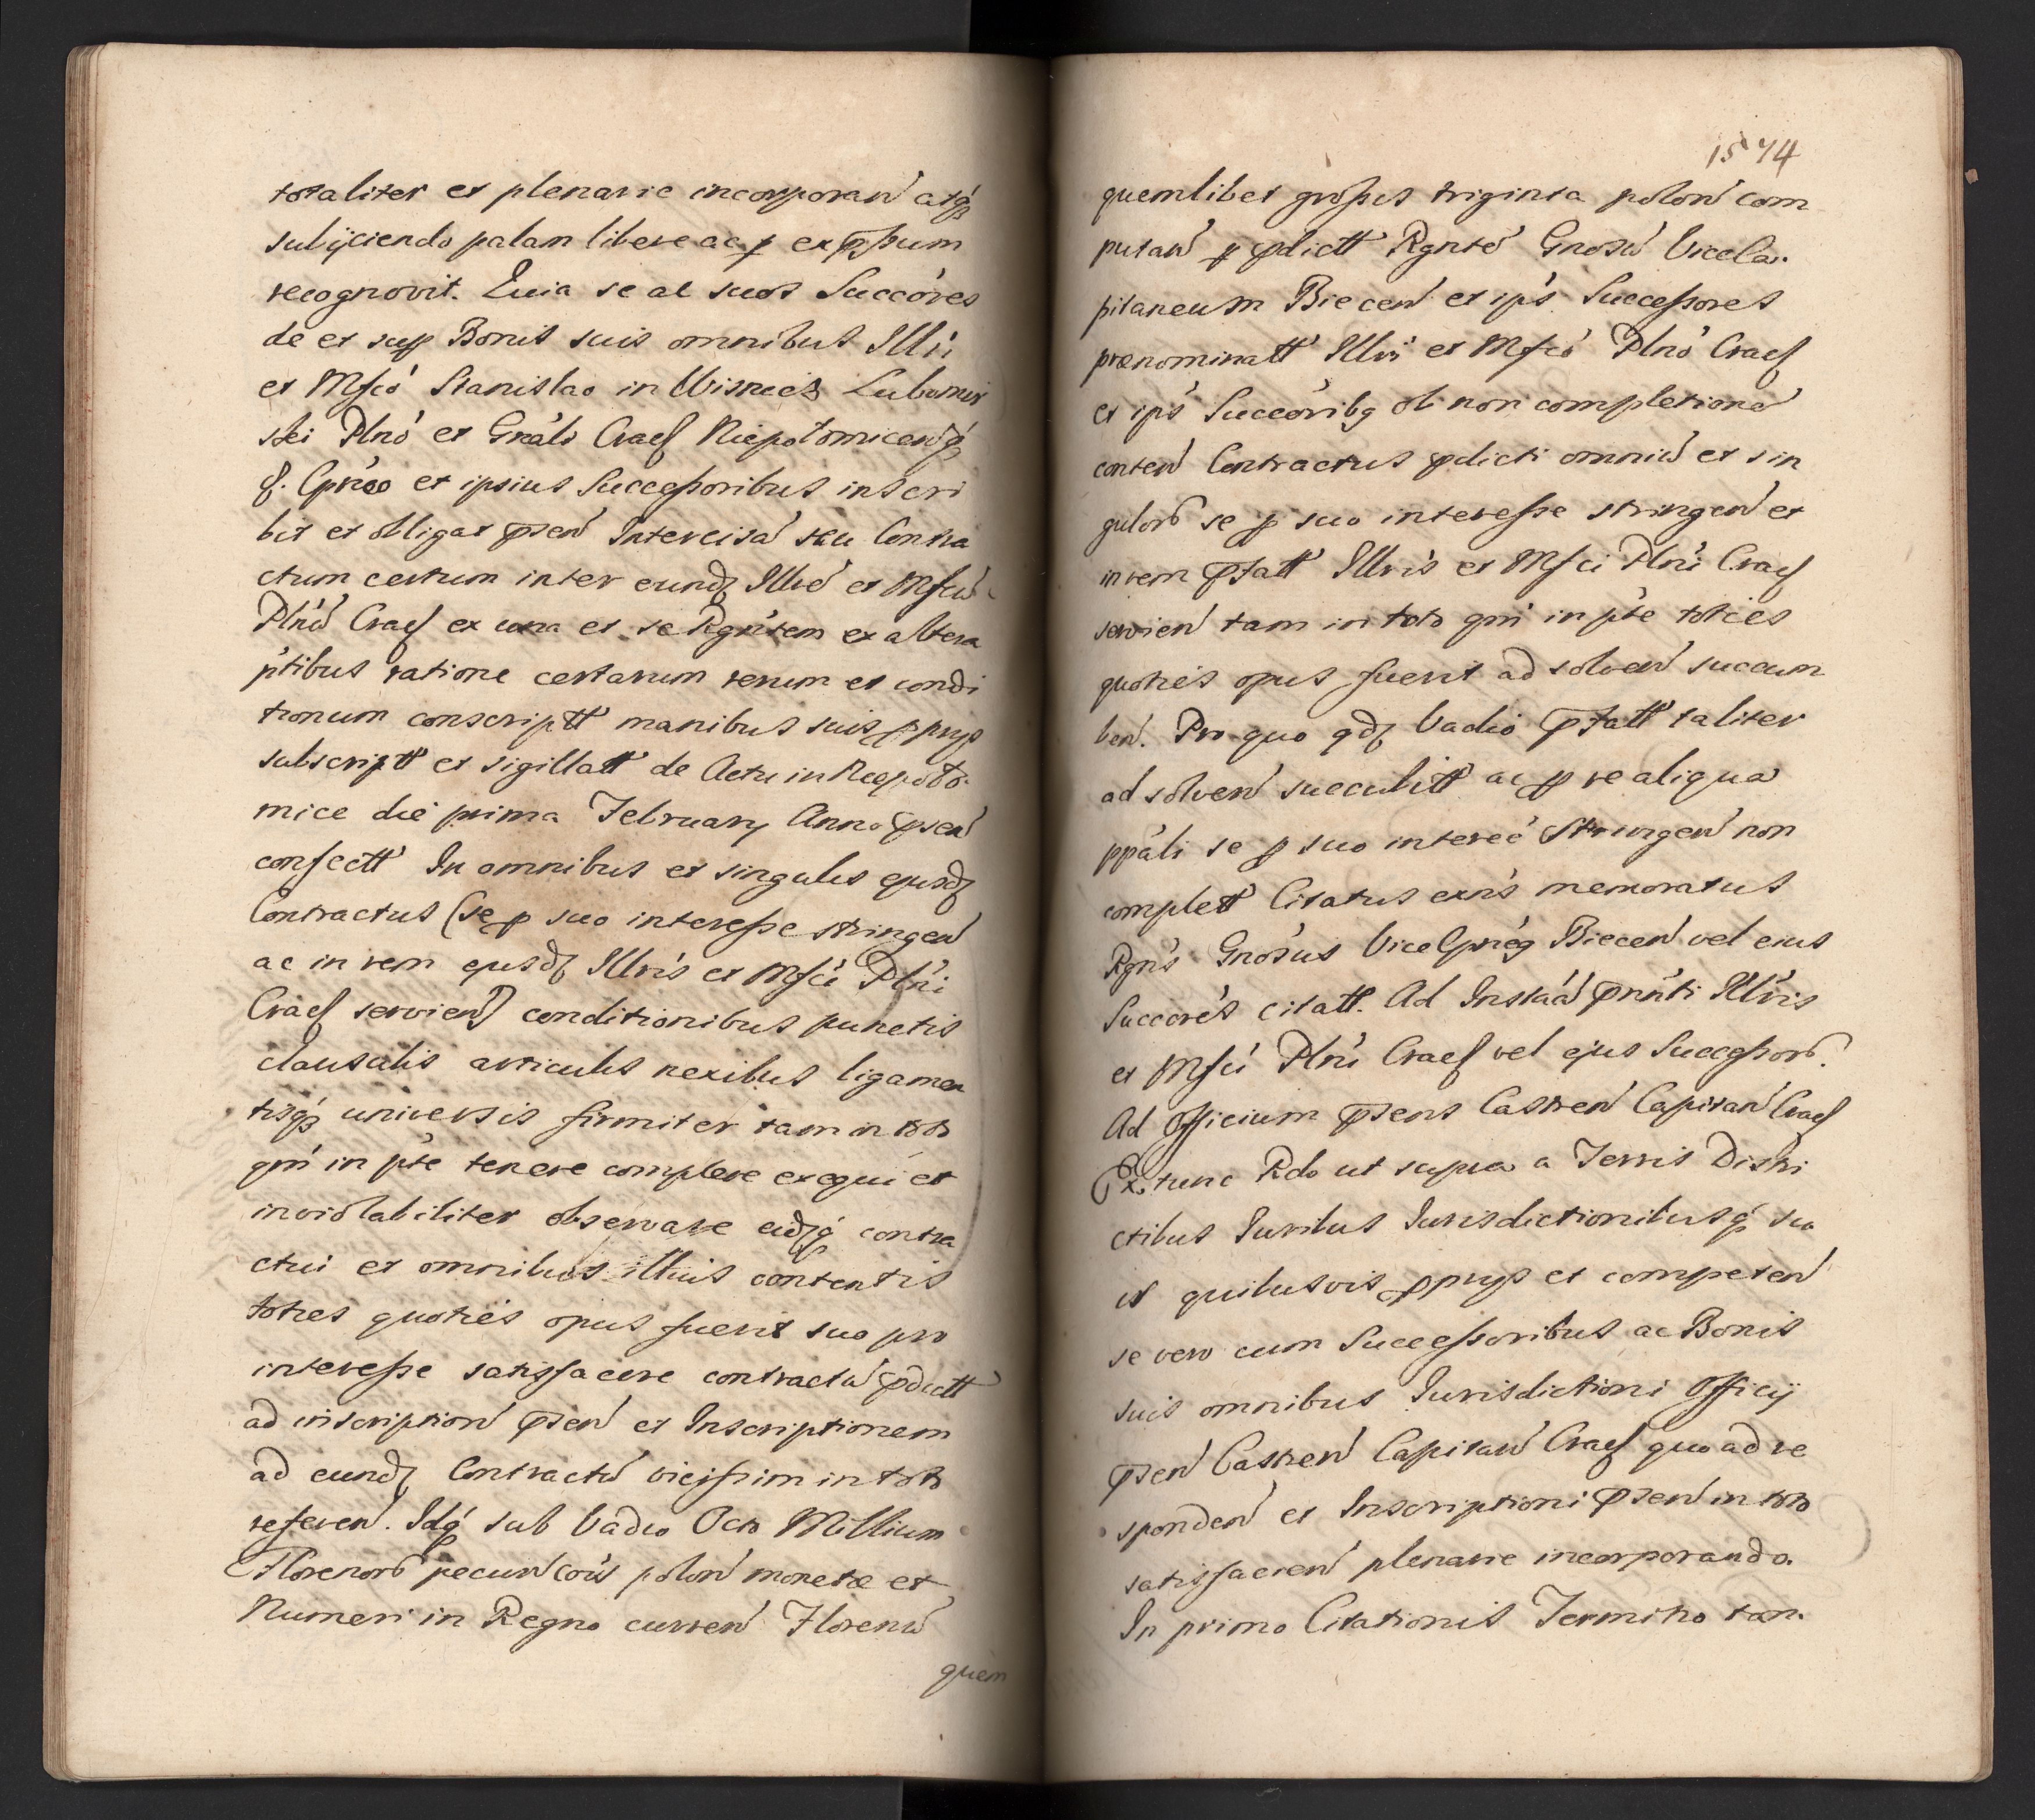 totaliter et plenarie incorporan̄ atq́
subijciendo palam libere ac p expssum
recognovit. Quia se ac suos Succóres
de et sup Bonis suis omnibus Illri
et Mfcó Stanislao in Wisnicz Lubomir
ski Plnó et Gnáli Cracʃ Niepolomicen̄q́
&. Cpnéo et ipsius Successoribus inscri
bit et obligat psen̄ Intercisā seu Contra
ctum certum inter eundʒ Illrē et Mfcū
Plnū Cracʃ ex una et se Rgntem ex altera
ptibus ratione certarum rerum et condi
tionum conscriptt manibus suis pprijs
subscriptt et sigillatt de Actu in Niepolo
mice die prima February Anno psen̄
confectt In omnibus et singulis ejusdʒ
Contractus (se p suo interesse stringen̄
ac in rem ejusdʒ Illrís et Mfci Plni
Cracʃ servien̄) conditionibus punctis
clausulis articulis nexibus ligamen
tisq́ universis firmiter tam in toto
qm̄ in pte tenere complere exequi et
inviolabiliter observare eidʒq́ contra
ctui et omnibus illius contentis
toties quotiés opus fuerit suo pro
interesse satisfacere contractū pdictt
ad inscription̄ psen̄ et Inscriptionem
ad eundʒ Contractū vicissim in toto
referen̄. Idq́ sub Vadio Octo Millium
Florenorō pecun̄ coís polon̄ monetæ et
Numeri in Regno curren̄ Florenū
quem
1574
quemlibet grossis triginta polon̄ com
putan̄ p pdictt Rgntē Gnosū Viceca
pitaneum Biecen̄ et ips Successores
prænominatt Illri et Mfcó Plnó Cracʃ
et ips Succóribq ob non completionē
conten̄ Contractus pdicti omniū et sin
gulorō se p suo interesse stringen̄ et
in rem pfatt Illris et Mfci Plni Cracʃ
servien̄ tam in toto qm̄ in pte toties
quotiés opus fuerit ad solven̄ succum
ben̄. Pro quo qdʒ Vadio pfatt taliter
ad solven̄ succubitt ac p re aliqua
ppáli se p suo intereé stringen̄ non
complett Citatus exn̄s memoratus
Rgns Gnosus ViceCpnéq Biecen̄ vel eius
Succorés citatt. Ad Instaā pnnti Illris
et Mfci Plni Cracʃ vel ejus Successorō.
Ad Officium psens Castren̄ Capitan̄ Cracʃ
Ex tunc Rdo ut supra a Terris Distri
ctibus Juribus Jurisdictionibusq́ su
is quibusvis pprijs et competen̄
se vero cum Successoribus ac Bonis
suis omnibus Jurisdictioni Officij
psen̄ Castren̄ Capitan̄ Cracʃ quo ad re
sponden̄ et Inscriptioni psen̄ in toto
satisfacien̄ plenarie incorporando.
In primo Citationis Termino tan